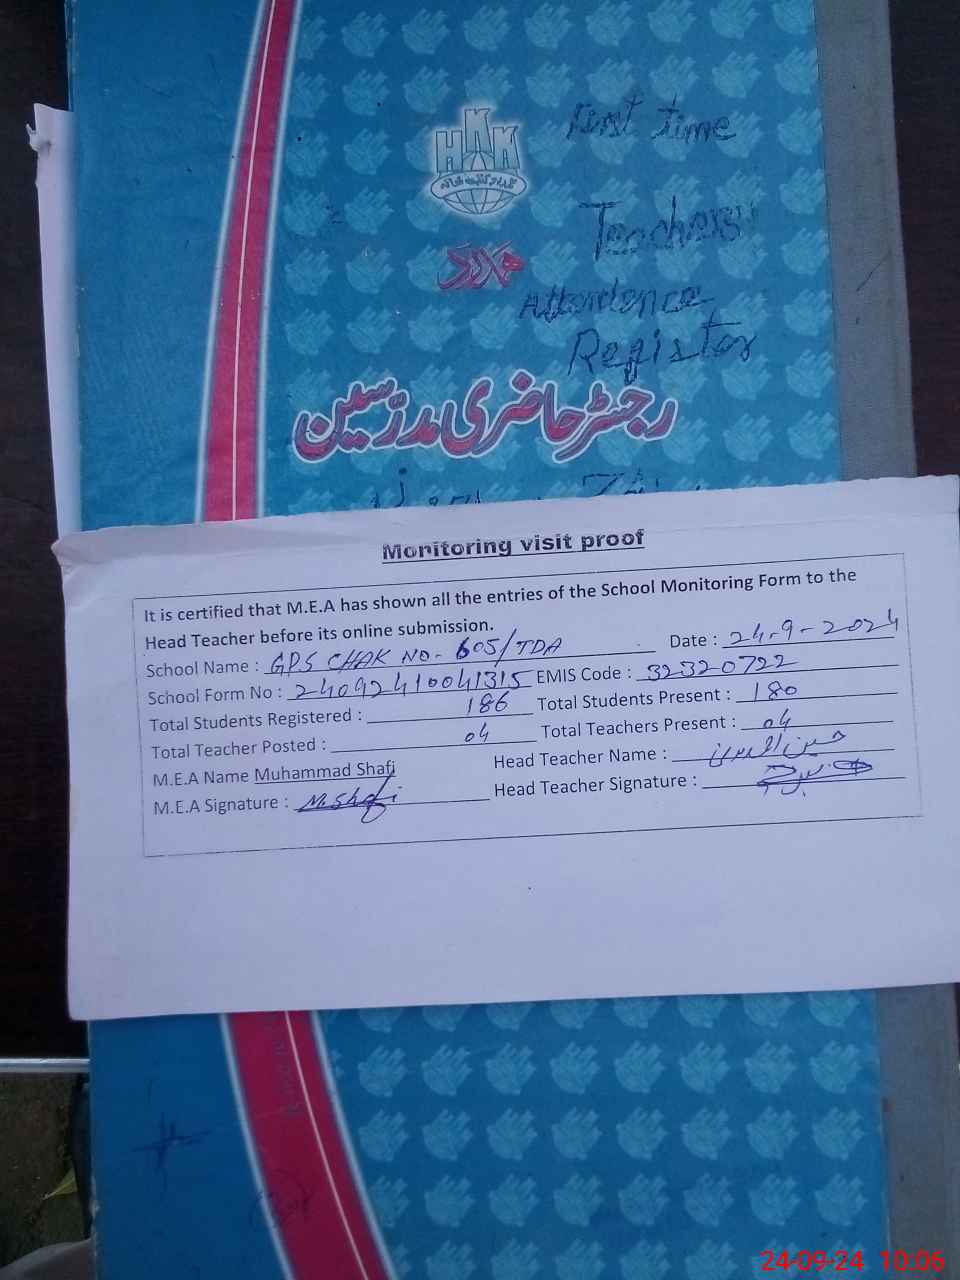 HKK
ہمدرد کتب خانہ
First time
Teachers
ہمدرد
Attendence
Register
رجسٹر حاضری مدرسین
Monitoring visit proof
It is certified that M.E.A has shown all the entries of the School Monitoring Form to the
Head Teacher before its online submission.
School Name : GPS CHAK NO. 605/TDA Date : 24-9-2024
School Form No : 24092410041315 EMIS Code : 32320722
Total Students Registered : 186 Total Students Present : 180
Total Teacher Posted : 04 Total Teachers Present : 04
M.E.A Name Muhammad Shafi Head Teacher Name :
M.E.A Signature : M.Shafi Head Teacher Signature :
24-09-24 10:06